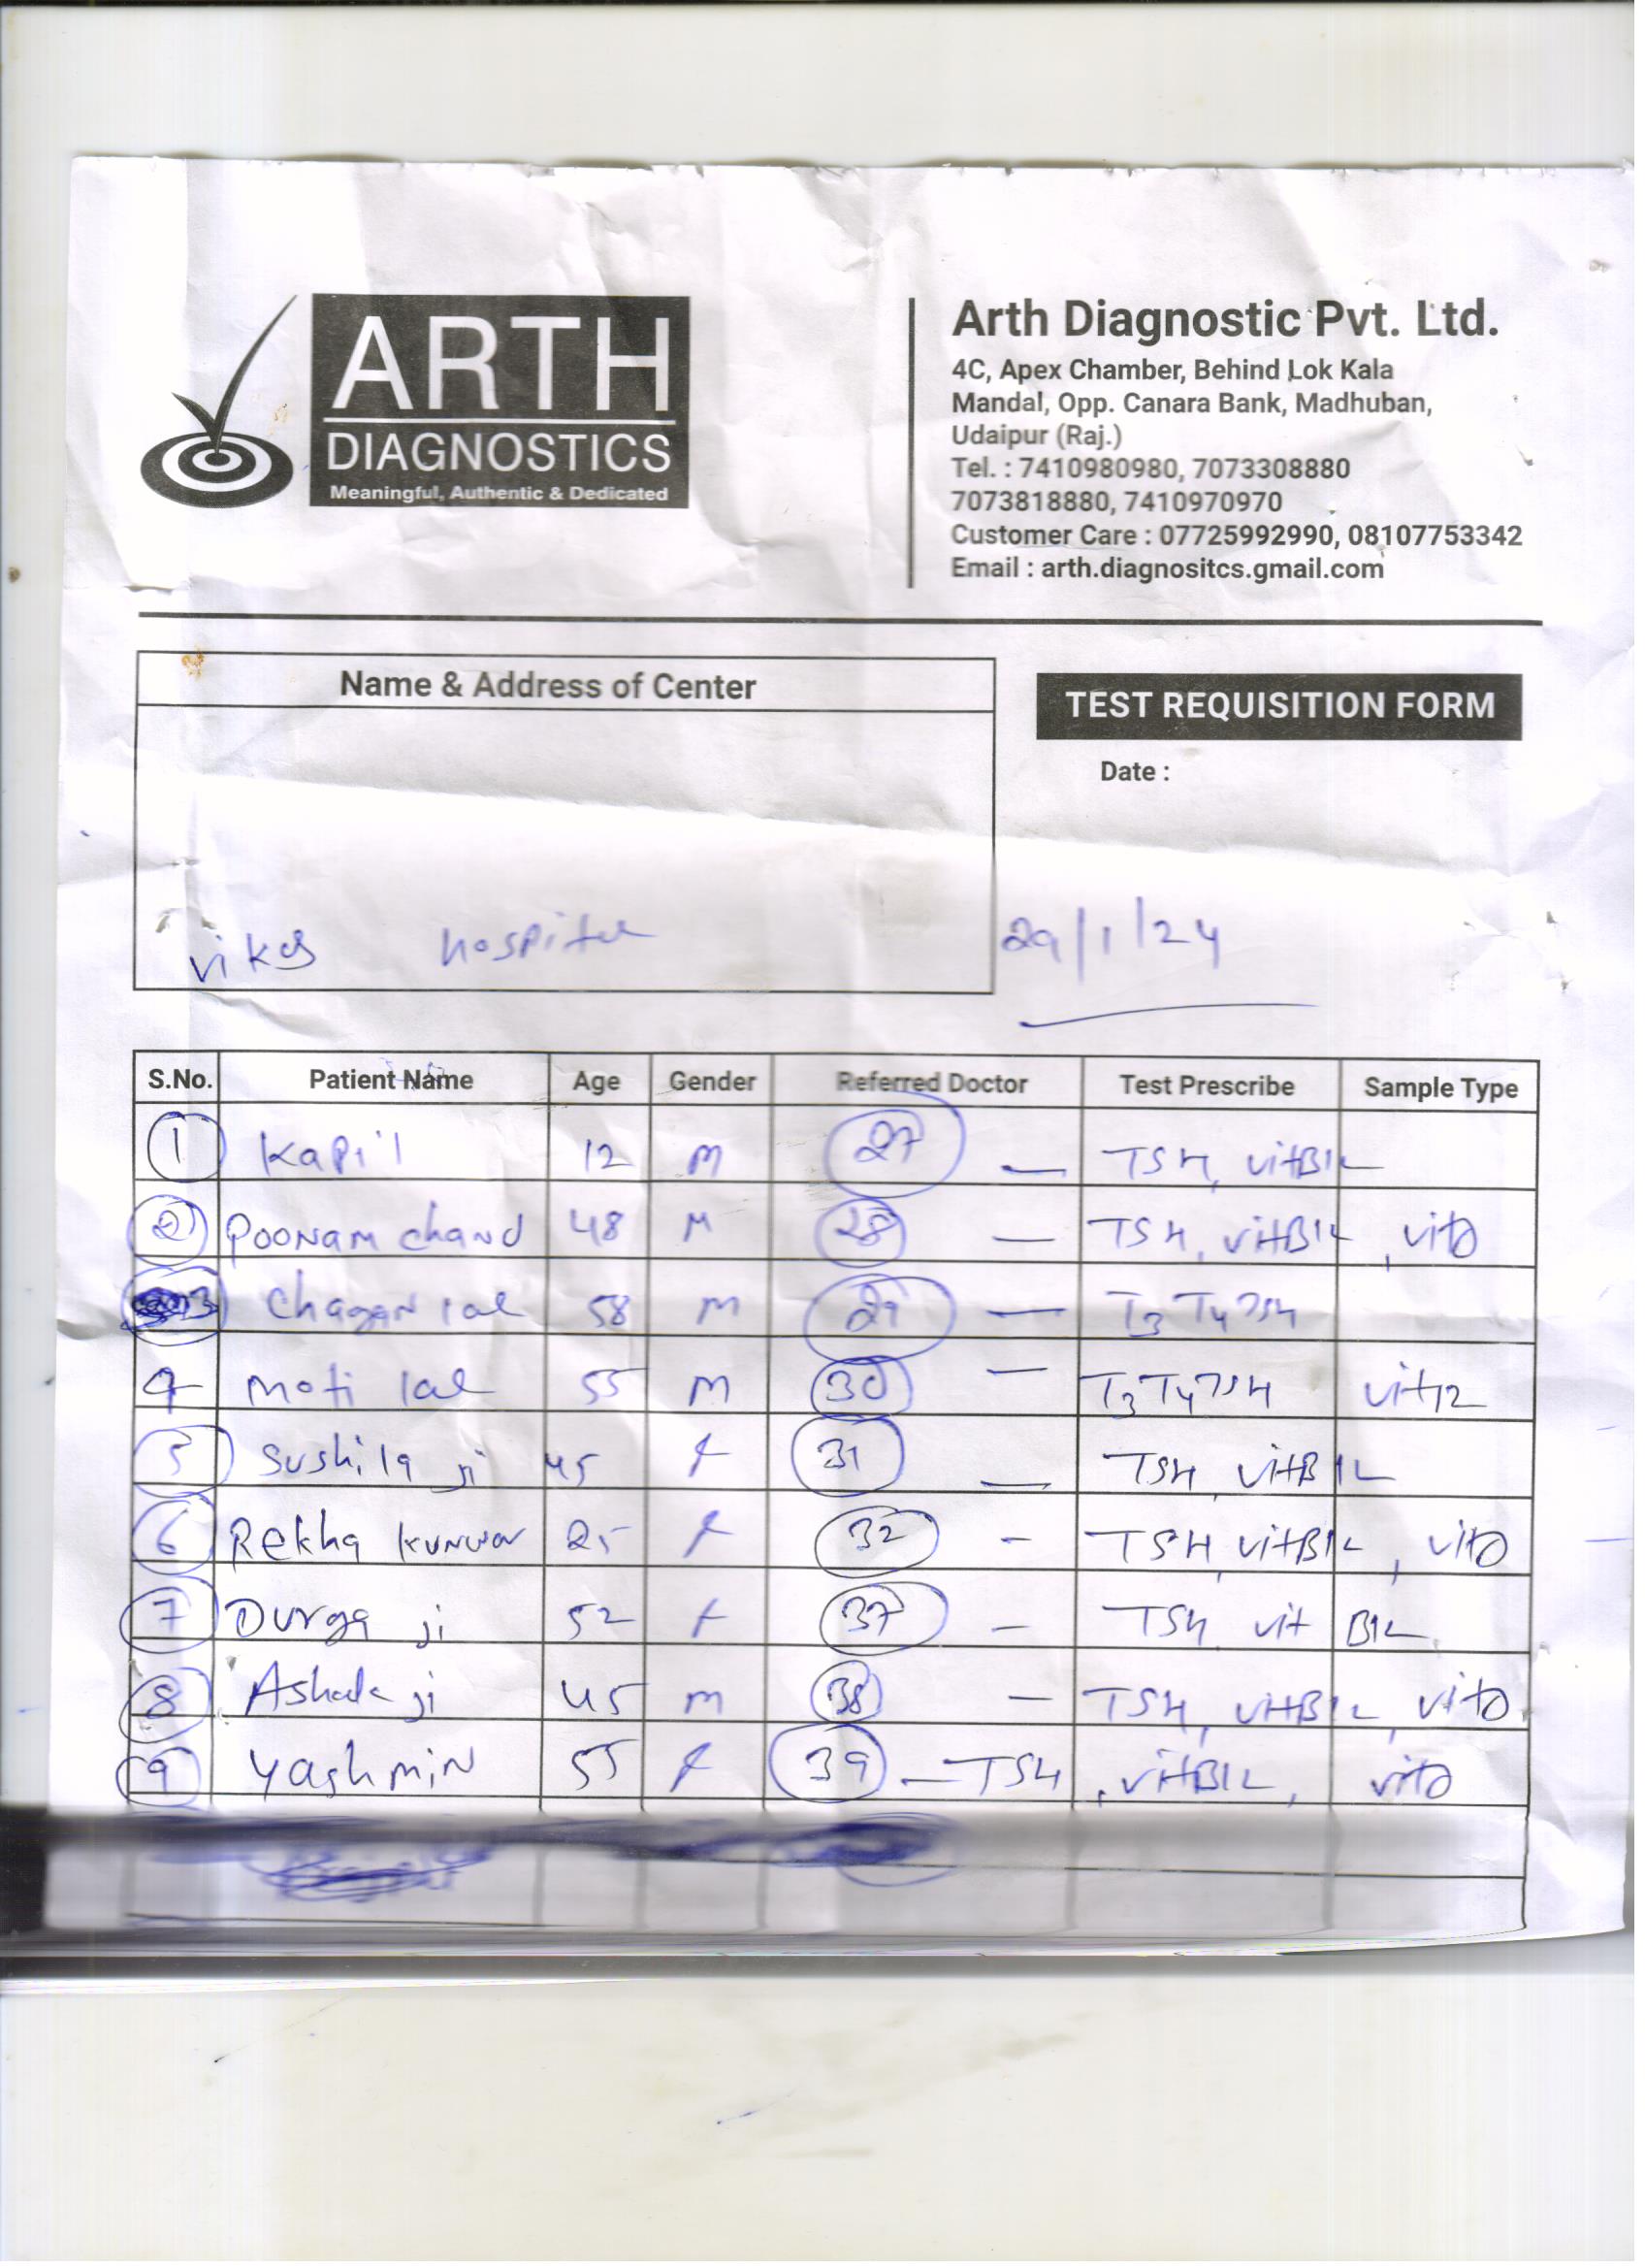 ARTH
DIAGNOSTICS
Meaningful, Authentic & Dedicated
Arth Diagnostic Pvt. Ltd.
4C, Apex Chamber, Behind Lok Kala
Mandal, Opp. Canara Bank, Madhuban,
Udaipur (Raj.)
Tel. : 7410980980, 7073308880
7073818880, 7410970970
Customer Care : 07725992990, 08107753342
Email : arth.diagnositcs.gmail.com
Name & Address of Center
TEST REQUISITION FORM
Date :
vikas hospital
29/1/24
S.No. Patient Name Age Gender Referred Doctor Test Prescribe Sample Type
1 Kapil 12 M 27 — TSH, vitB12
2 Poonam chand 48 M 28 — TSH, vitB12, vitD
3 Chagan lal 58 M 29 — T3 T4 TSH
4 Moti lal 55 M 30 — T3 T4 TSH vit12
5 Sushila ji 45 f 31 — TSH, vitB12
6 Rekha kunwar 25 f 32 — TSH, vitB12, vitD
7 Durga ji 52 f 37 — TSH vit B12
8 Ashok ji 45 m 38 — TSH, vitB12, vitD
9 Yashmin 55 f 39 — TSH, vitB12, vitD